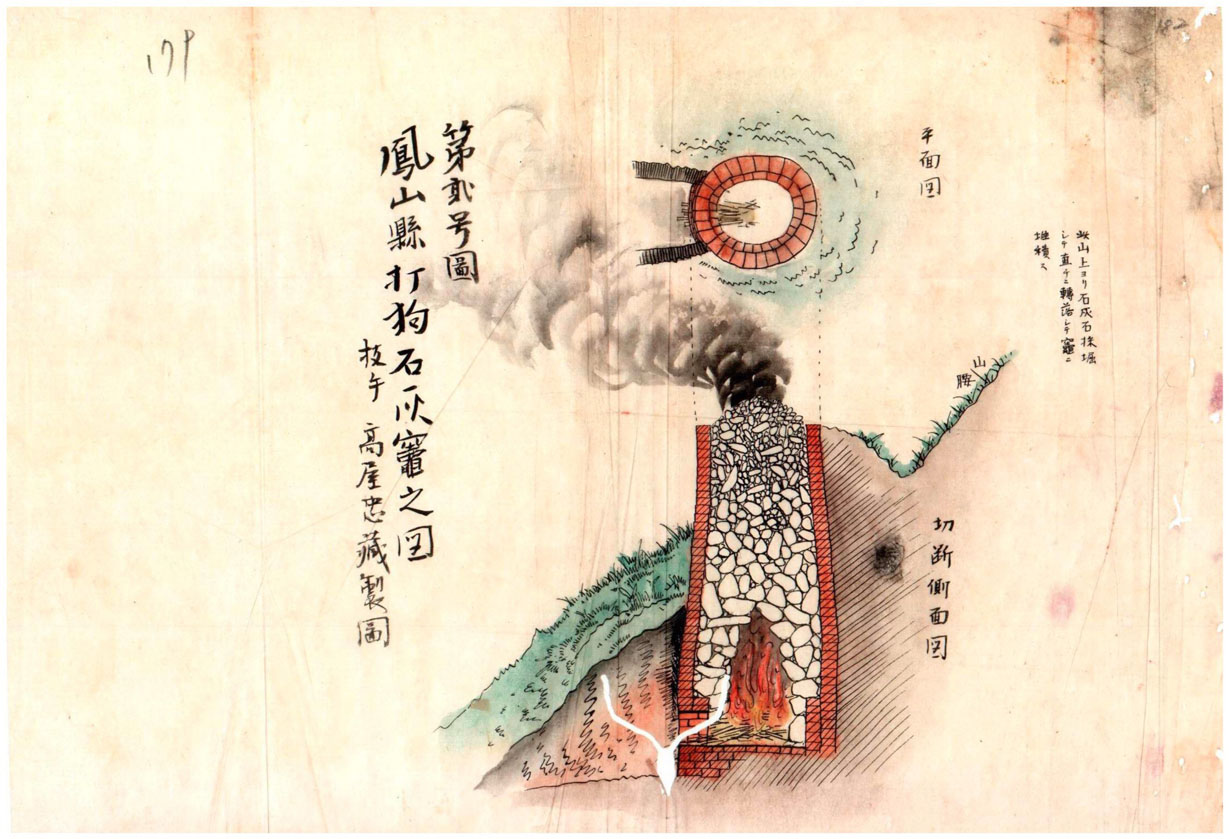 182
179
平面図
此山上ヨリ石灰石採堀
シテ直チニ轉落シテ竈ニ
堆積ス
山腰
切断側面図
第貳号圖
鳳山縣打狗石灰竈之図
技手 高屋忠藏製圖